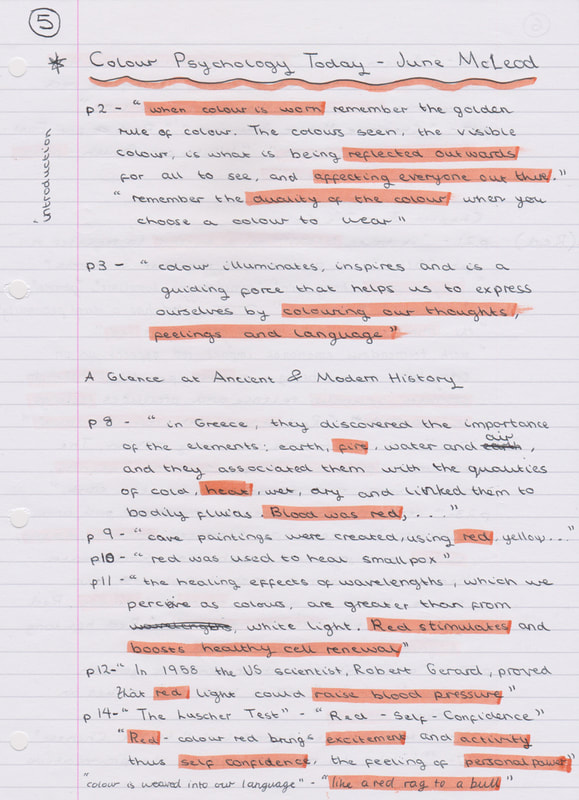 5
* Colour Psychology Today - June McLeod
introduction
p2 - " when colour is worn remember the golden
rule of colour. The colours seen, the visible
colour, is what is being reflected outwards
for all to see, and affecting everyone out there."
" remember the duality of the colour when you
choose a colour to wear "
p3 - " colour illuminates, inspires and is a
guiding force that helps us to express
ourselves by colouring our thoughts,
feelings and language "
A Glance at Ancient & Modern History
p8 - " in Greece, they discovered the importance
of the elements: earth, fire, water and air,
and they associated them with the qualities
of cold, heat, wet, dry and linked them to
bodily fluids. Blood was red, ... "
p 9 - " cave paintings were created, using red, yellow... "
p10 - " red was used to heal smallpox "
p11 - " the healing effects of wavelengths, which we
percive as colours, are greater than from
white light. Red stimulates and
boosts healthy cell renewal "
p12 - " In 1958 the US scientist, Robert Gerard, proved
that red light could raise blood pressure "
p 14 - " The Luscher Test " - " Red - Self-Confidence "
" Red - colour red brings excitement and activity
thus self confidence, the feeling of personal power "
" colour is weaved into our language " - " like a red rag to a bull "